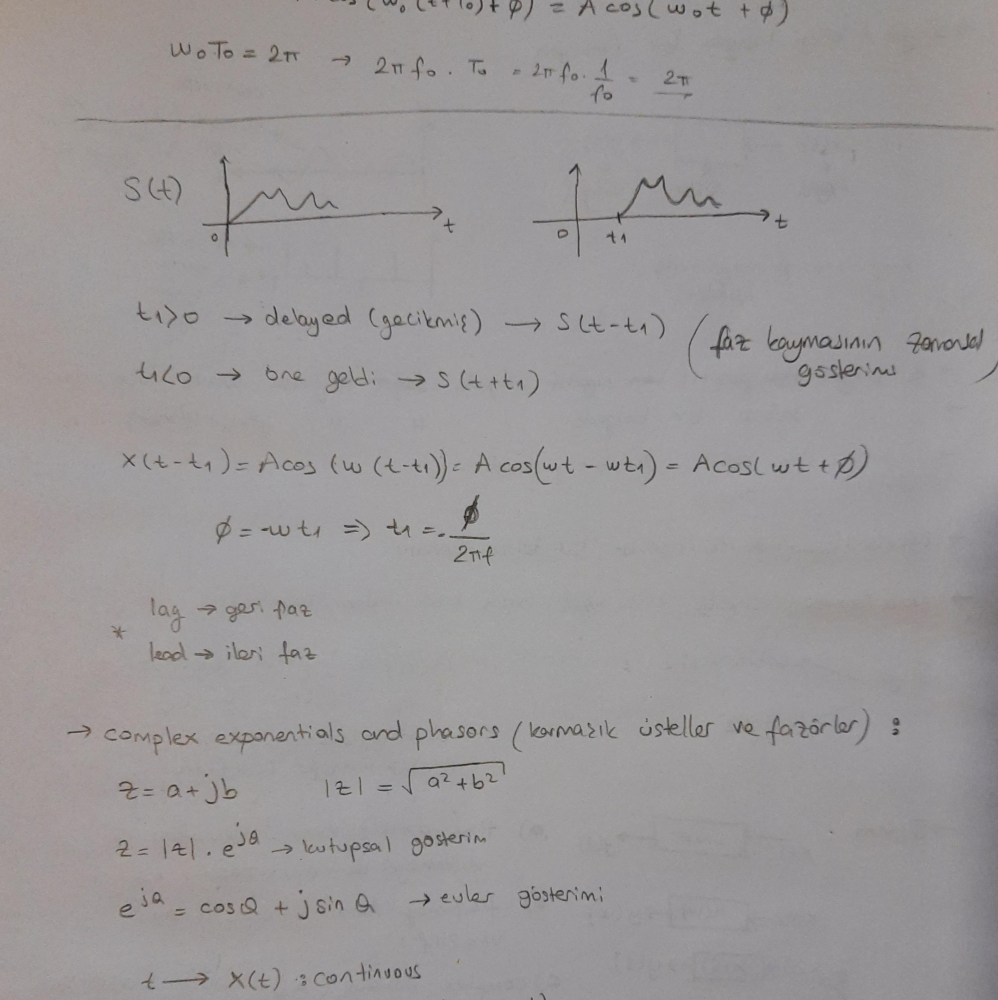 (w₀(t+T₀)+φ) = A cos(w₀t + φ)
w₀T₀ = 2π → 2πf₀ . T₀ = 2πf₀ . 1/f₀ = 2π
S(t) 0 t 0 t₁ t
t₁>0 → delayed (gecikmiş) → S(t-t₁) (faz kaymasının zamansal
t₁<0 → öne geldi → S(t+t₁) gösterimi)
x(t-t₁) = A cos (w (t-t₁)) = A cos(wt - wt₁) = A cos(wt + φ)
φ = -wt₁ => t₁ = - φ/2πf
lag → geri faz
*
lead → ileri faz
→ complex exponentials and phasors (karmaşık üsteller ve fazörler) :
z = a + jb |z| = √a² + b²
z = |z| . e^jθ → kutupsal gösterim
e^jθ = cosθ + j sinθ → euler gösterimi
t → x(t) : continuous